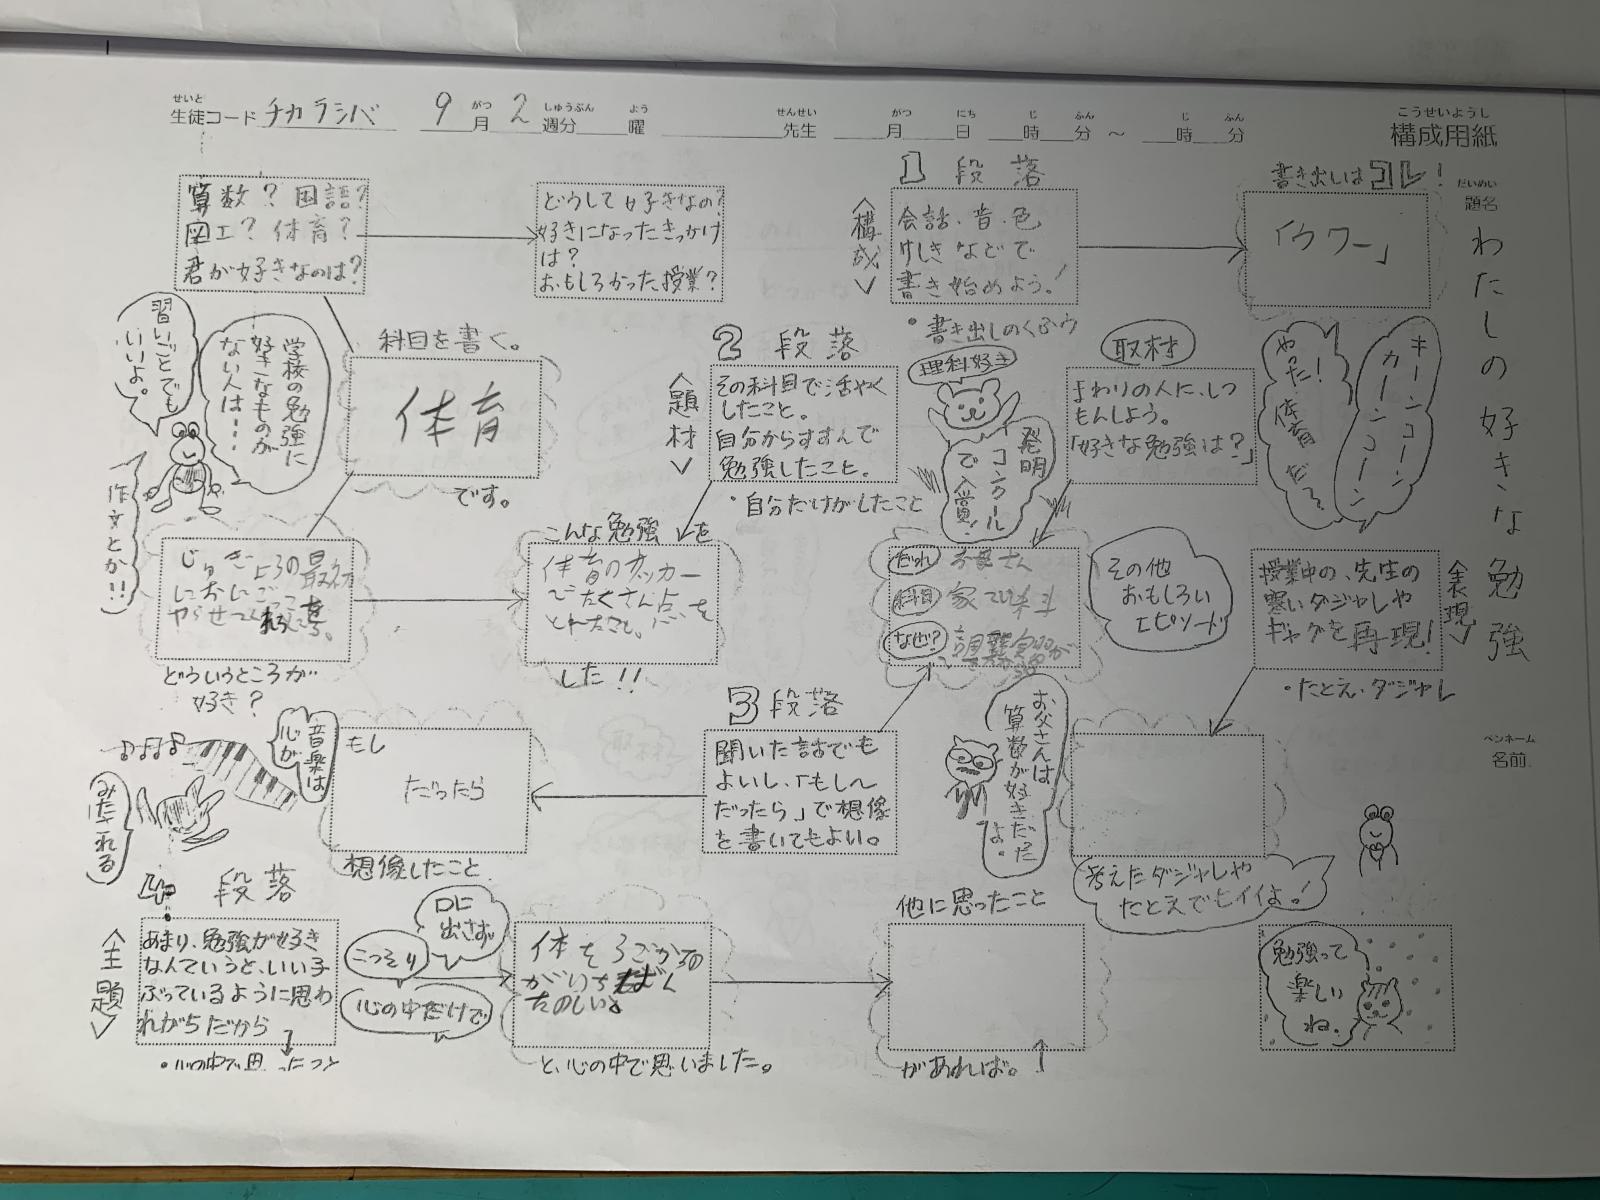 こうせいようし
構成用紙
せいと
生徒コード チカラシバ 9 がつ 月 2 しゅうぶん 週分 よう 曜 せんせい 先生 がつ 月 にち 日 じ 時 ふん 分 ～ じ 時 ふん 分
だいめい
題名
わたしの好きな勉強
ペンネーム
名前
書き出しはコレ!
「ウワー」
キーンコーン
カーンコーン
やった!
体育だ〜
1 段落
<構成>
会話・音・色
けしきなどで
書き始めよう!
・書き出しのくふう
どうして好きなの?
好きになったきっかけ
は?
おもしろかった授業?
算数? 国語?
図工? 体育?
君が好きなのは?
科目を書く。
体育
です。
学校の勉強に
好きなものが
ない人は・・・
習いごとでも
いいよ。
作文とか!!
どういうところが
好き?
2 段落
<題材>
その科目で活やく
したこと。
自分からすすんで
勉強したこと。
・自分だけがしたこと
こんな勉強を
体育のサッカー
でたくさん点を
した!!
理科好き
発明
コンクール
で入賞!
取材
まわりの人に、しつ
もんしよう。
「好きな勉強は?」
だれ お母さん
科目
なぜ?
その他
おもしろい
エピソード
<表現>
授業中の、先生の
寒いダジャレや
ギャグを再現!
・たとえ・ダジャレ
考えたダジャレや
たとえでモイイよ!
3 段落
聞いた話でも
よいし、「もし〜
だったら」で想像
を書いてもよい。
お父さんは
算数が好きだった
よ。
もし
だったら
想像したこと
音楽は
心が
みたされる
4 段落
<主題>
あまり、勉強が好き
なんていうと、いい子
ぶっているように思わ
れがちだから
・心の中で思ったこと
口に
出さず
こっそり
心の中だけで
体をうごかすの
がいちばん
たのしい。
と、心の中で思いました。
他に思ったこと
があれば。
勉強って
楽しい
ね.